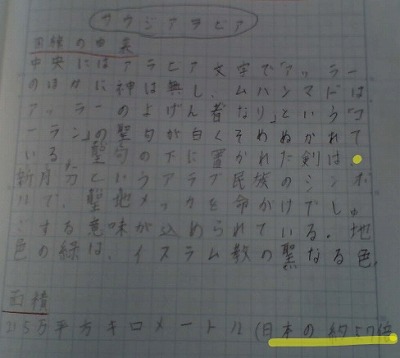 サウジアラビア
国旗の由来
中央にはアラビア文字で「アッラー
のほかに神は無し、ムハンマドは
アッラーのよげん者なり」という「コ
ーラン」の聖句が白くそめぬかれて
いる。聖句の下に置かれた剣は、
新月刀というアラブ民族のシンボ
ルで、聖地メッカを命がけで
する意味が込められている。地
色の緑は、イスラム教の聖なる色
面積
215万平方キロメートル(日本の約5.7倍